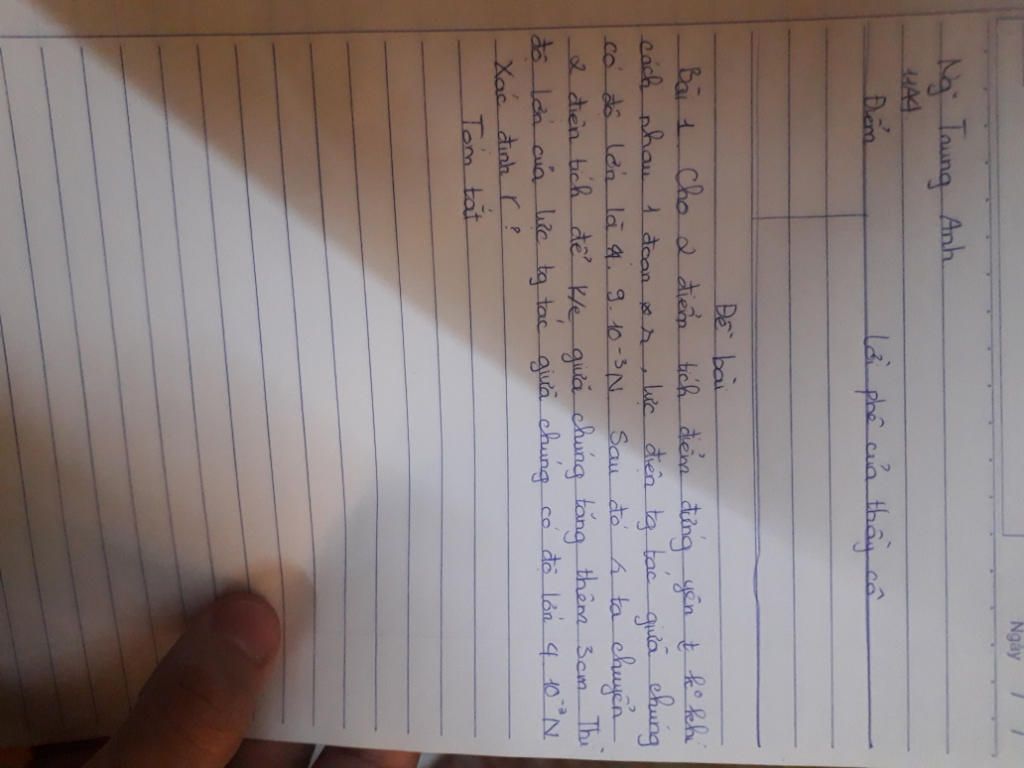 Ngày / /
Ng Trung Anh
11A1
Điểm Lời phê của thầy cô
Đề bài
Bài 1. Cho 2 điểm tích điểm đứng yên t kô khí
cách nhau 1 đoạn r, lực điện tg tác giữa chúng
có độ lớn là 9.10⁻³N. Sau đó ta chuyển
2 điện tích để K/c giữa chúng tăng thêm 3cm Thì
độ lớn của lực tg tác giữa chúng có độ lớn 4.10⁻³N
Xác định r?
Tóm tắt